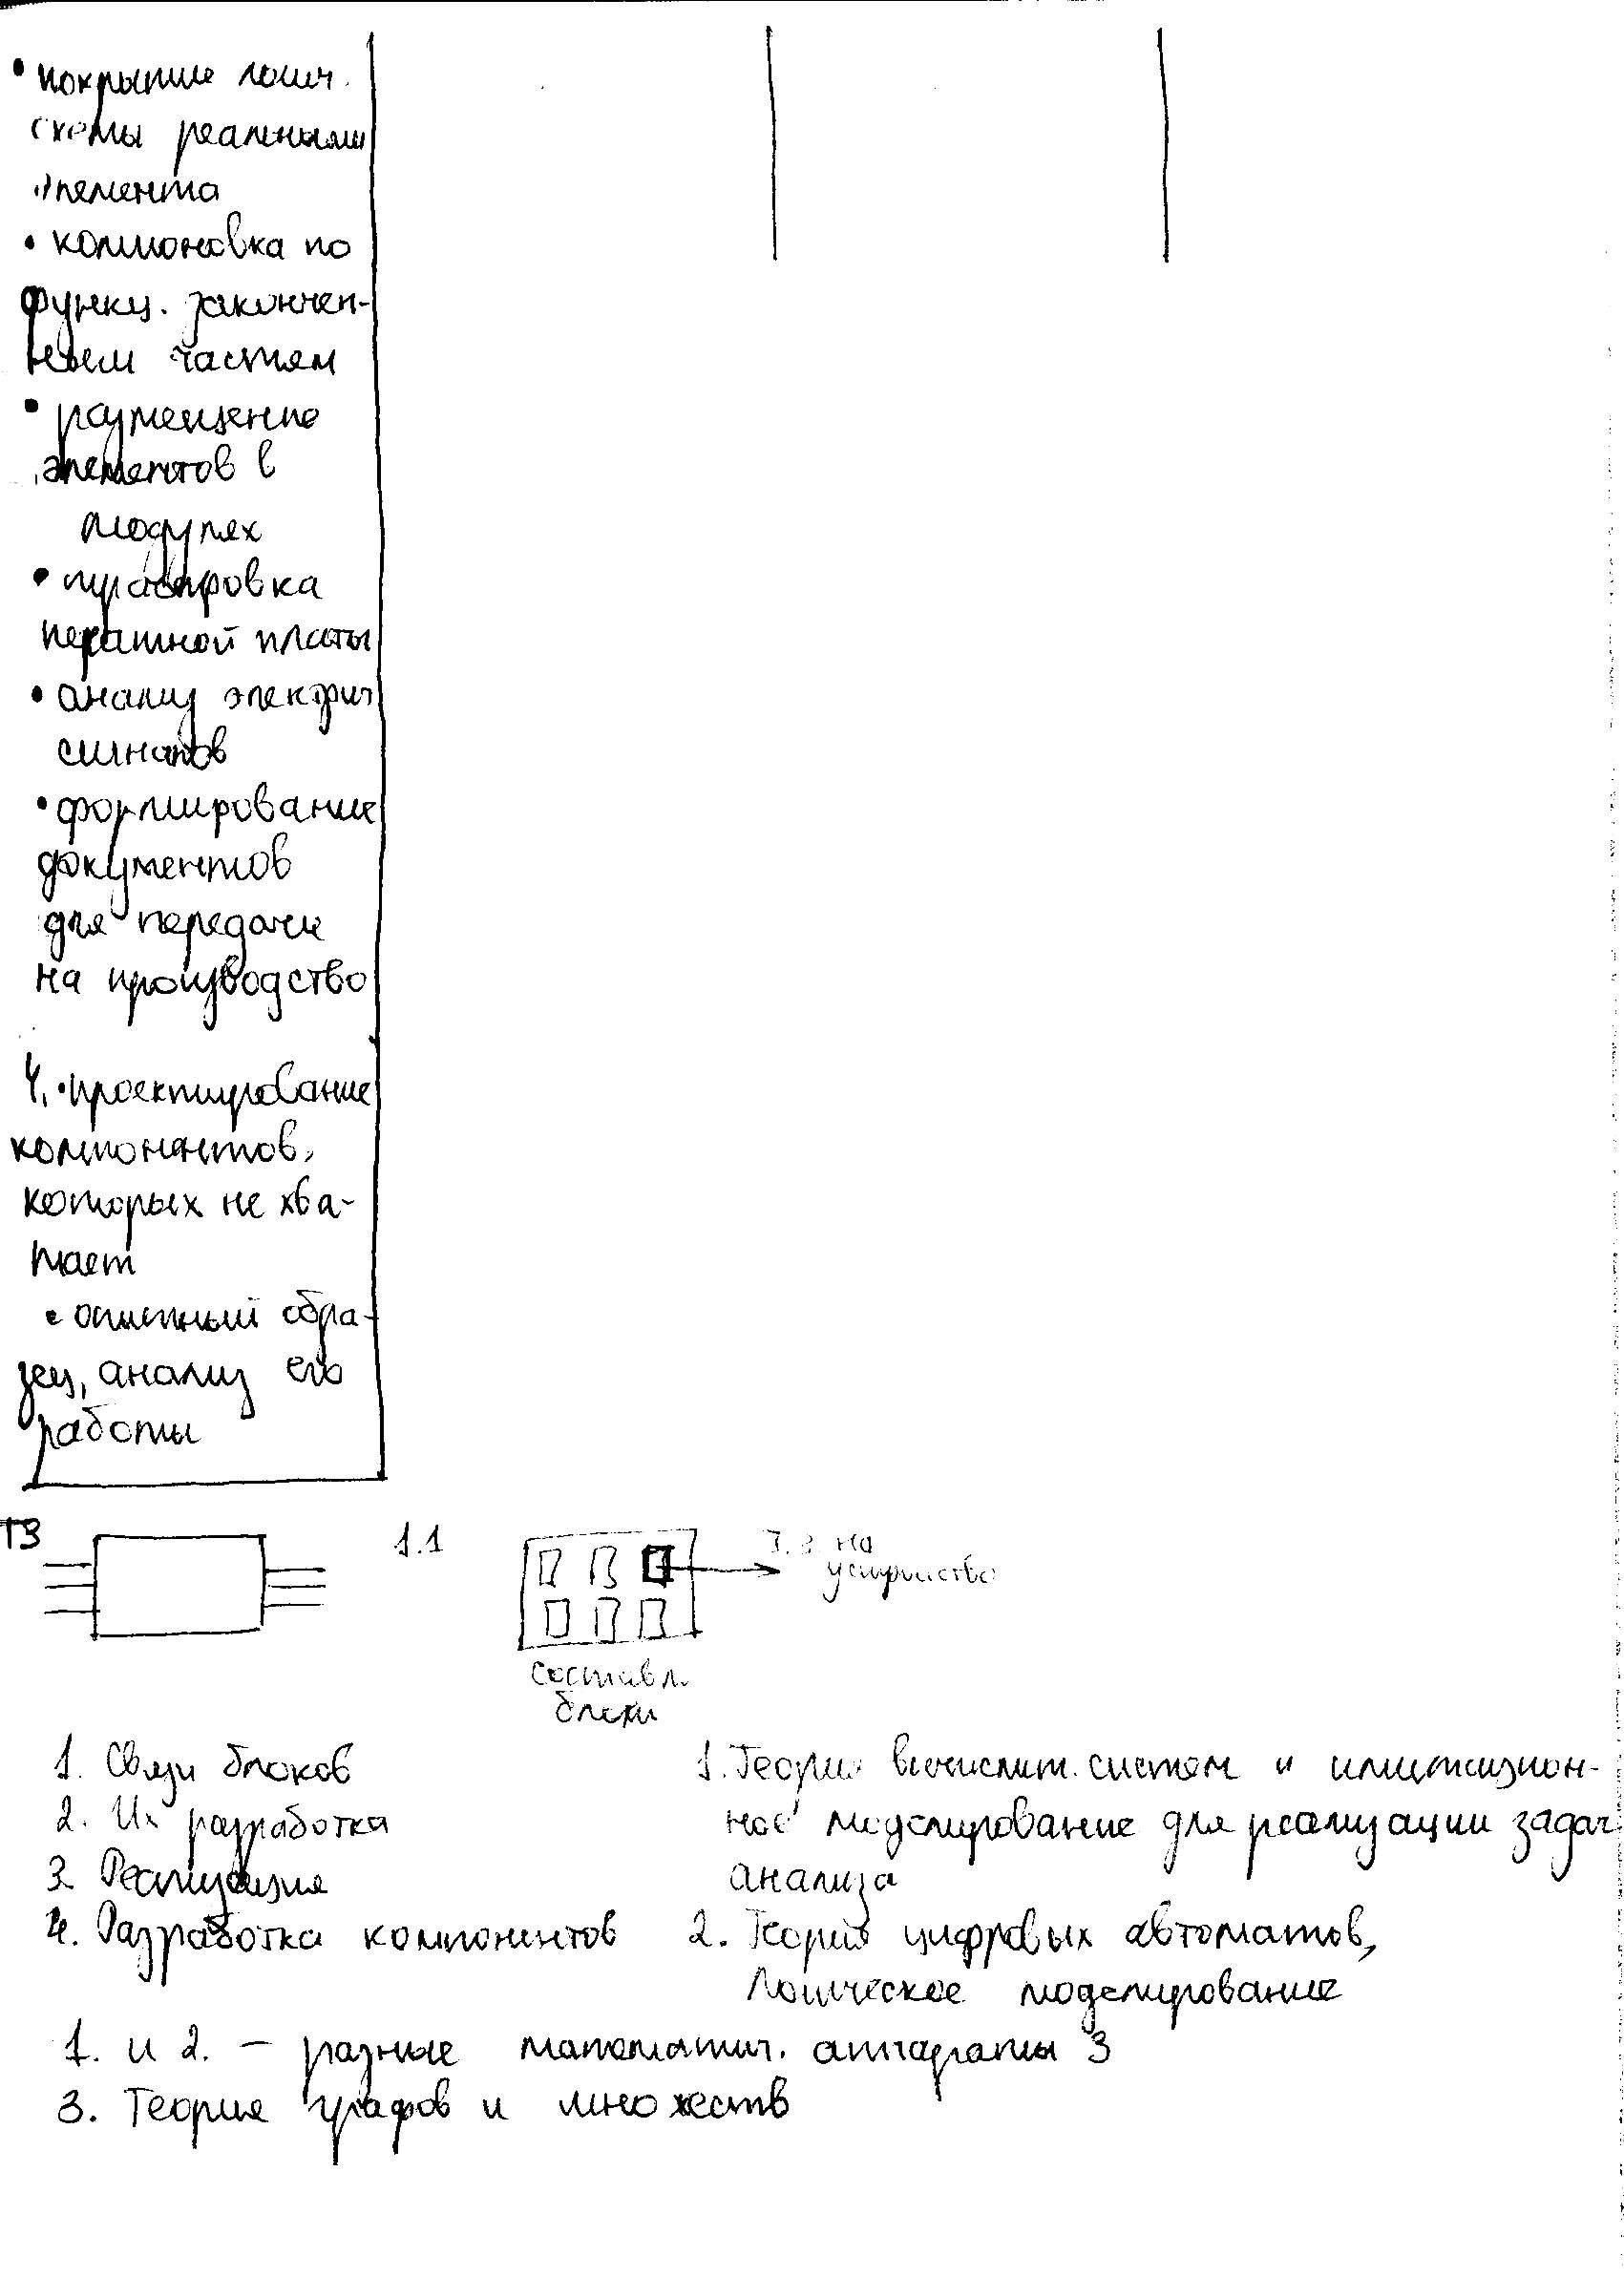 • покрытие логич.
схемы реальными
элемента
• компоновка по
функц. закончен-
ным частям
• размещение
элементов в
модулях
• трассировка
печатной платы
• анализ электрич
сигналов
• формирование
документов
для передачи
на производство
4. • проектирование
компонентов,
которых не хва-
тает
• опытный обра-
зец, анализ его
работы
ТЗ
1.1
на
устройство
составл.
блоки
1. Связи блоков
2. Их разработка
3. Реализация
4. Разработка компонентов
1. Теория вычислит. систем и имитацион-
ное моделирование для реализации задач
анализа
2. Теория цифровых автоматов,
Логическое моделирование
1. и 2. – разные математич. аппараты 3
3. Теория графов и множеств